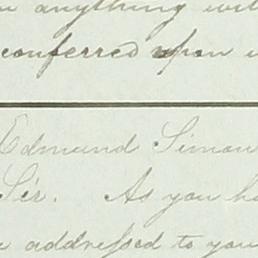 anything wit
conferred upon
Edmund Simon
Sir. As you ha
addressed to you